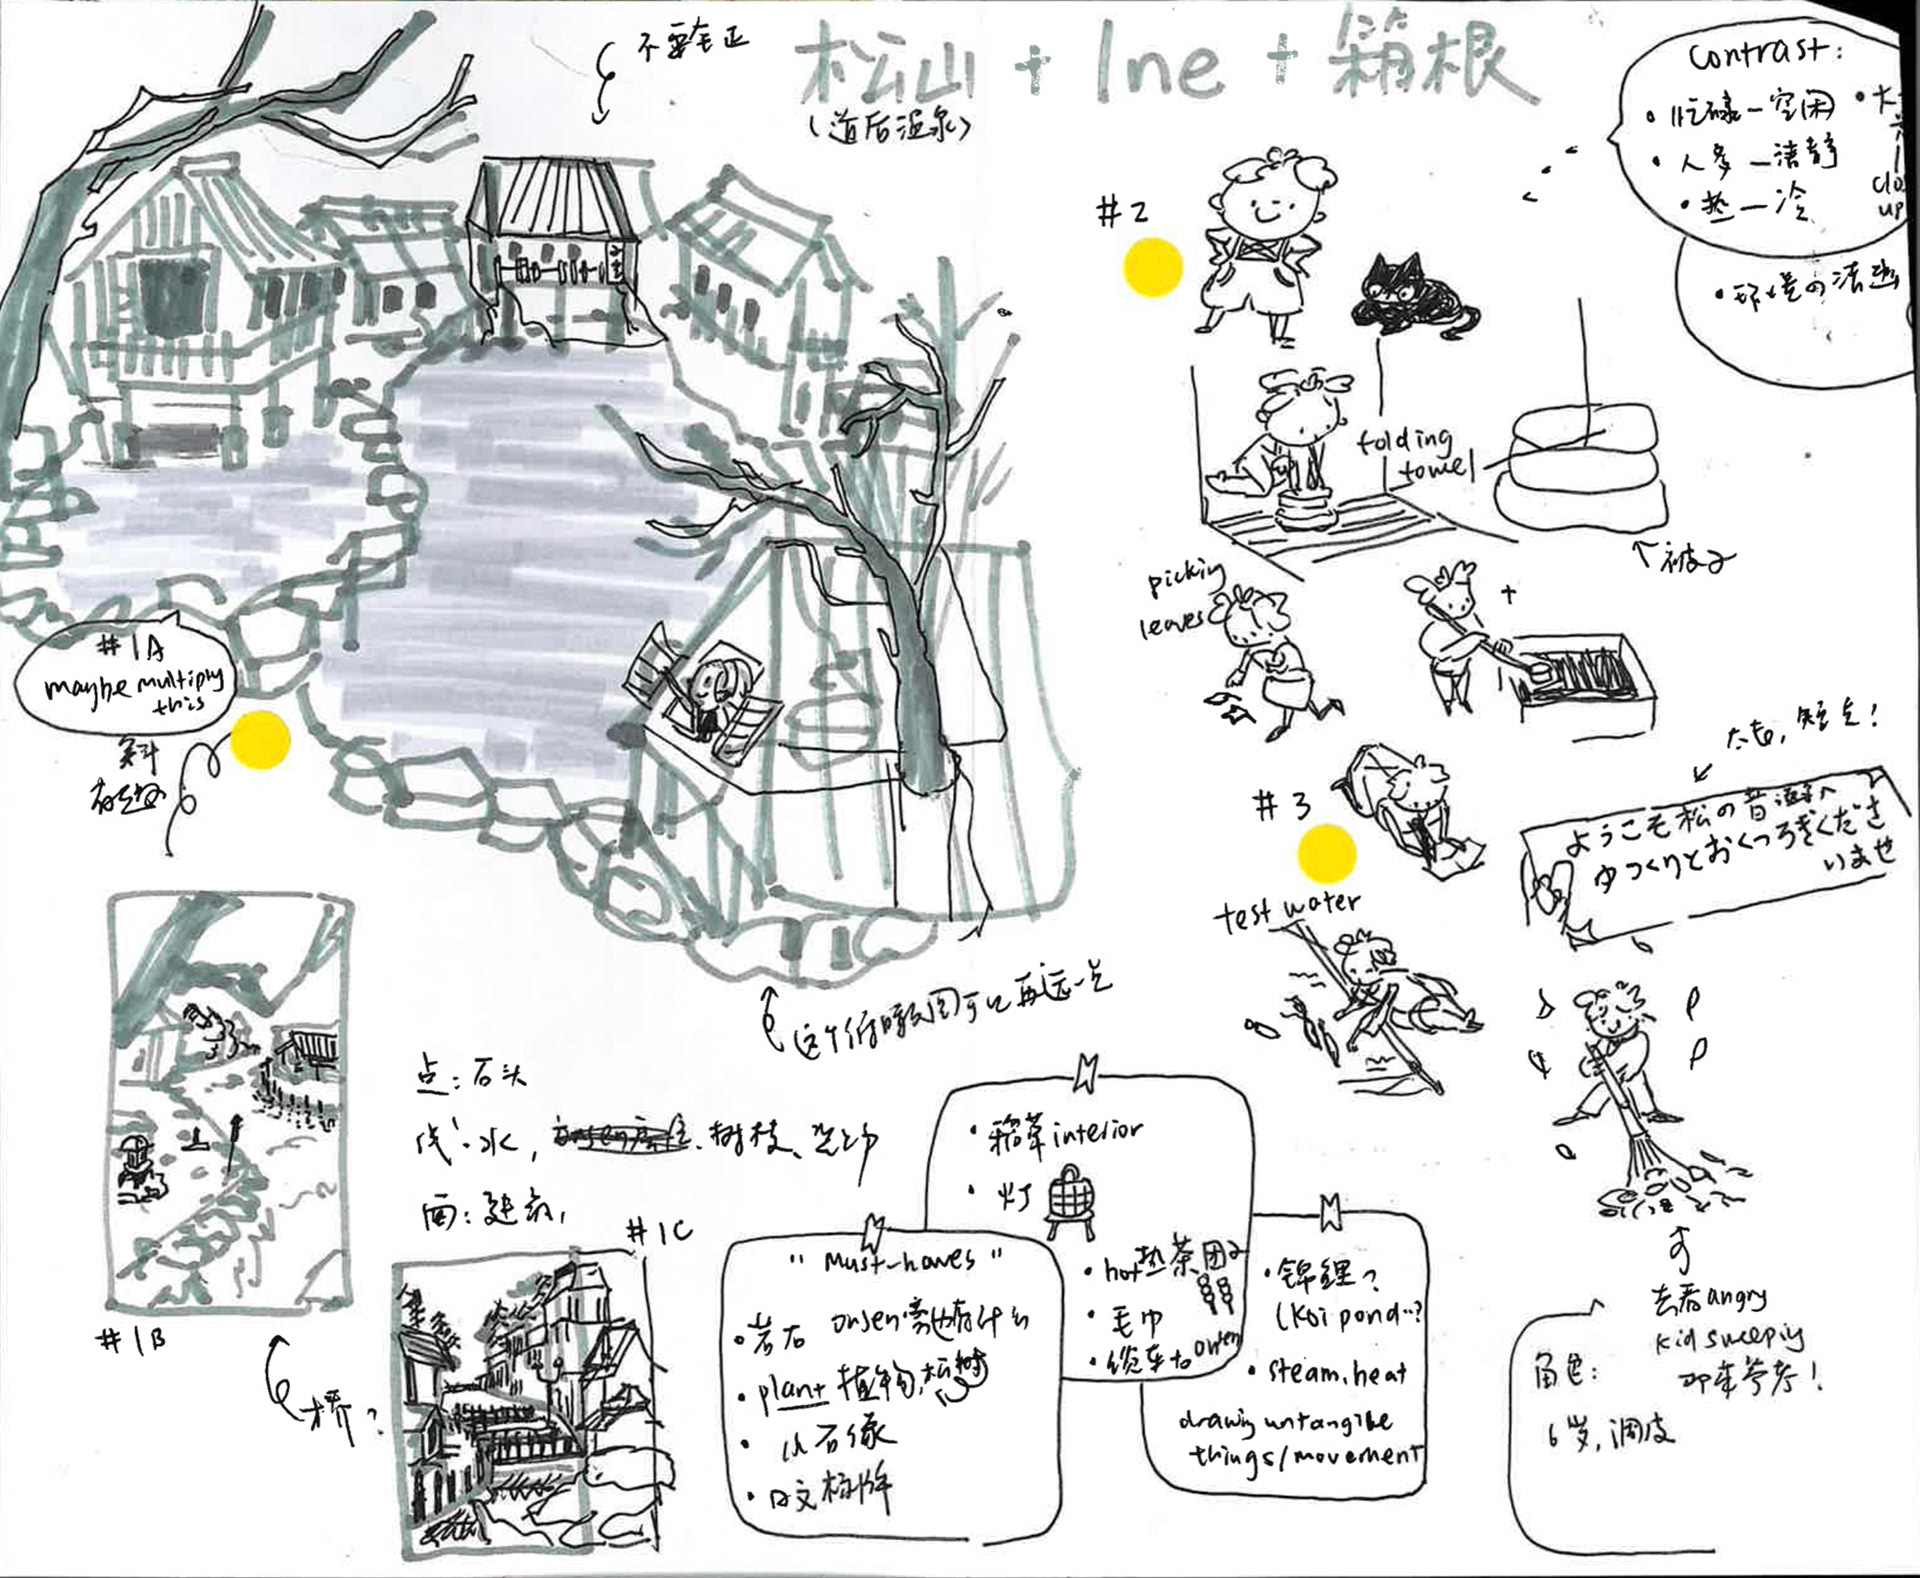 不要年正
松山 + Ine + 箱根
(道后温泉)
contrast:
• 忙碌 — 空闲
• 人多 — 清静
• 热 — 冷
• 大
clo
up
• 环境の清幽
#2
folding
towel
↑ 被子
picking
leaves
#1A
maybe multiply
this
斜
有趣
太长, 短点!
#3
ようこそ松の昔湯へ
ゆっくりとおくつろぎくださ
いませ
test water
这个俯瞰图可以再远一点
点: 石头
线: 水, 树枝、
面: 建筑,
#1B
桥?
#1C
"Must-haves"
• 岩石
• plant 植物, 松树
• 小石像
• 日文标牌
• 稻草 interior
• 灯
• hot 热茶 团子
• 毛巾
• 缆车 to onsen
• 锦鲤?
(Koi pond..?
• steam, heat
drawing untangible
things/movement
去看 angry
kid sweeping
印来参考!
角色:
6岁, 调皮